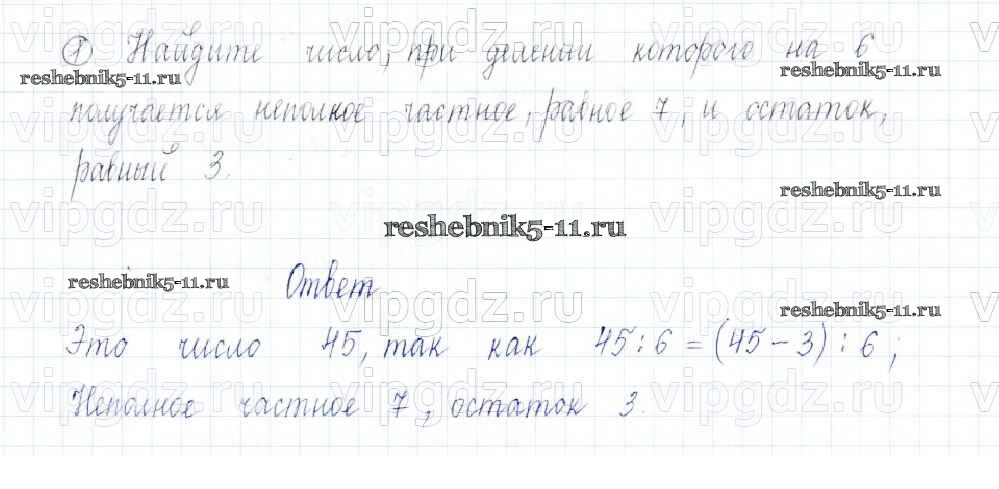 ① Найдите число, при делении которого на 6
reshebnik5-11.ru reshebnik5-11.ru
получается неполное частное, равное 7, и остаток,
равный 3.
reshebnik5-11.ru
reshebnik5-11.ru
reshebnik5-11.ru
Ответ
reshebnik5-11.ru
Это число 45, так как 45 : 6 = (45 - 3) : 6;
Неполное частное 7, остаток 3.
vipgdz.ru